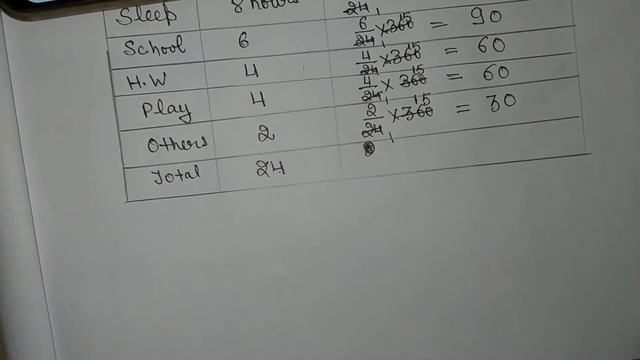 Sleep 8 hours 24 1
School 6 6/24 1 × 360 15 = 90
H.W 4 4/24 1 × 360 15 = 60
Play 4 4/24 1 × 360 15 = 60
Others 2 2/24 1 × 360 15 = 30
Total 24